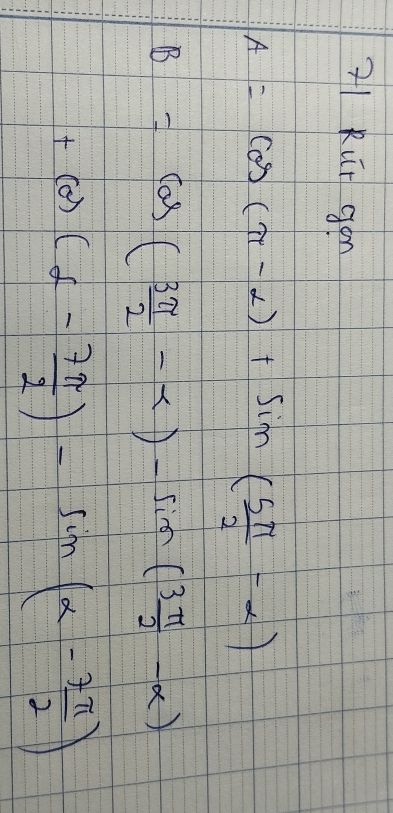 7| Rút gọn
A = cos (π - α) + sin (5π/2 - α)
B = cos (3π/2 - α) - sin (3π/2 - α)
+ cos (α - 7π/2) - sin (α - 7π/2)